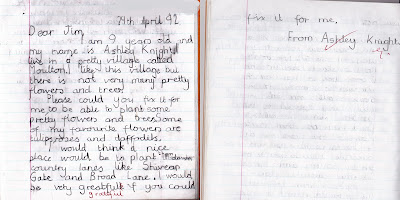 29th April 92
Dear Jim
I am 9 years old and
my name is Ashley Knight I
live in a pretty village called
Moulton I like this village but
there is not very many pretty
flowers and trees.
Please could you fix it for
me to be able to plant some
pretty flowers and trees some
of my favourite flowers are
tulips, roses and daffodils.
I would think a nice
place would be to plant them down
country lanes like
Gate and Broad Lane. I would
be very greatfull if you could
grateful
fix it for me.
From Ashley Knight